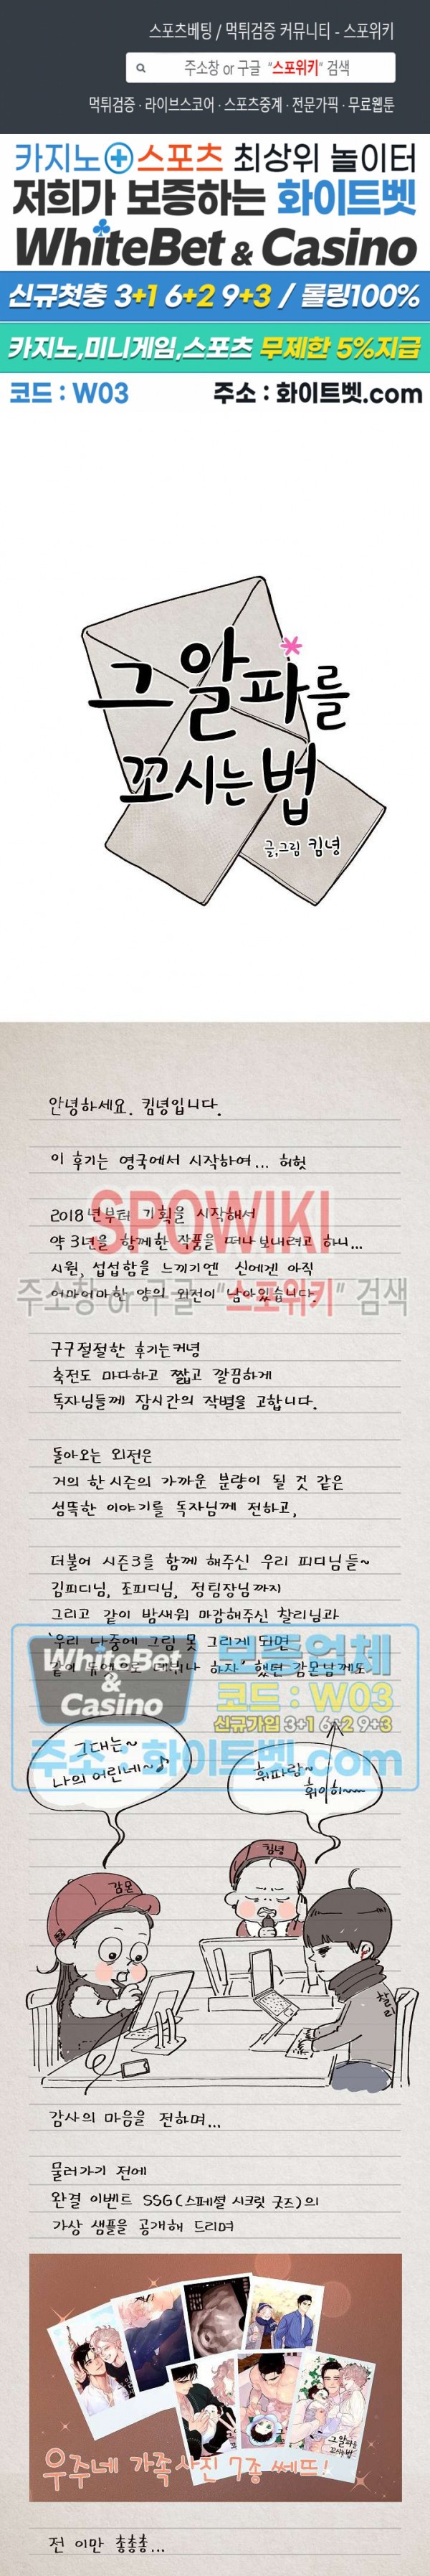 스포츠베팅 / 먹튀검증 커뮤니티 - 스포위키
주소창 or 구글 "스포위키" 검색
먹튀검증 · 라이브스코어 · 스포츠중계 · 전문가픽 · 무료웹툰
카지노+스포츠 최상위 놀이터
저희가 보증하는 화이트벳
WhiteBet & Casino
신규첫충 3+1 6+2 9+3 / 롤링100%
카지노,미니게임,스포츠 무제한 5%지급
코드 : W03 주소 : 화이트벳.com
그 알파를
꼬시는 법
글,그림 킴녕
안녕하세요. 킴녕입니다.
이 후기는 영국에서 시작하여... 허헛
2018년부터 기획을 시작해서
SPOWIKI
약 3년을 함께한 작품을 떠나보내려고 하니...
시원, 섭섭함을 느끼기엔 신에겐 아직
어마어마한 양의 외전이 남아있습니다.
주소창 or 구글 "스포위키" 검색
구구절절한 후기는커녕
축전도 마다하고 짧고 깔끔하게
독자님들께 잠시간의 작별을 고합니다.
돌아오는 외전은
거의 한 시즌의 가까운 분량이 될 것 같은
섬뜩한 이야기를 독자님께 전하고,
더불어 시즌3를 함께 해주신 우리 피디님들~
김피디님, 조피디님, 정팀장님까지
그리고 같이 밤새워 마감해주신 찰리님과
'우리 나중에 그림 못 그리게 되면
같이 듀엣으로 데뷔나 하자' 했던 감몬님께도
WhiteBet
&
Casino
보증업체
코드 : W03
신규가입 3+1 6+2 9+3
주소 : 화이트벳.com
그대는~
나의 어린네~♪
휘파람~
휘이히~
감몬
킴녕
찰리
감사의 마음을 전하며...
물러가기 전에
완결 이벤트 SSG(스페셜 시크릿 굿즈)의
가상 샘플을 공개해 드리며
그 알파를 꼬시는 법
우주네 가족사진 7종 쎄뜨!
전 이만 총총총...